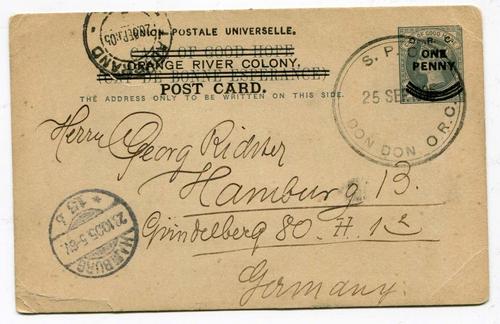 UNION POSTALE UNIVERSELLE.
CAPE OF GOOD HOPE
ORANGE RIVER COLONY.
(CAP DE BONNE ESPERANCE)
POST CARD.
THE ADDRESS ONLY TO BE WRITTEN ON THIS SIDE.
OF GOOD HO
O. R. C.
ONE
PENNY
S. P. O.
25 SE
DON DON O.R.C.
Herrn Georg Richter
Hamburg 13.
Grindelberg 80. H. 1
Germany.
HAMBURG
* 13 b